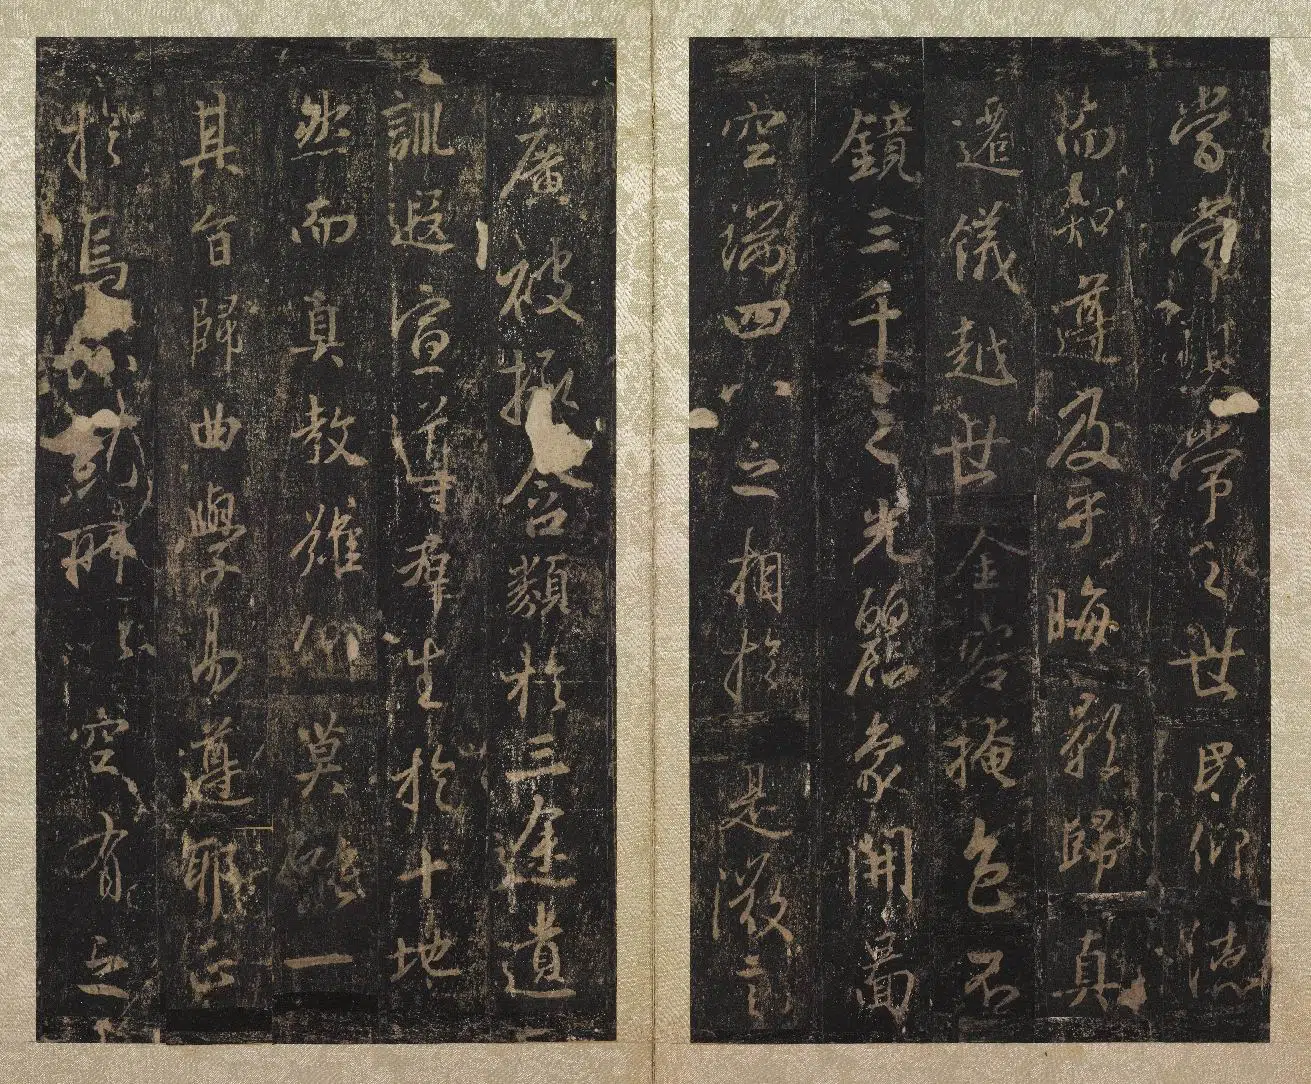 當常現常之世民仰德
而知遵及乎晦影歸真
遷儀越世金容掩色不
鏡三千之光麗象開圖
空端四八之相於是微言
廣被拯含類於三途遺
訓遐宣導群生於十地
然而真教難仰莫能一
其旨歸曲學易遵耶正
於焉紛糺所以空有之